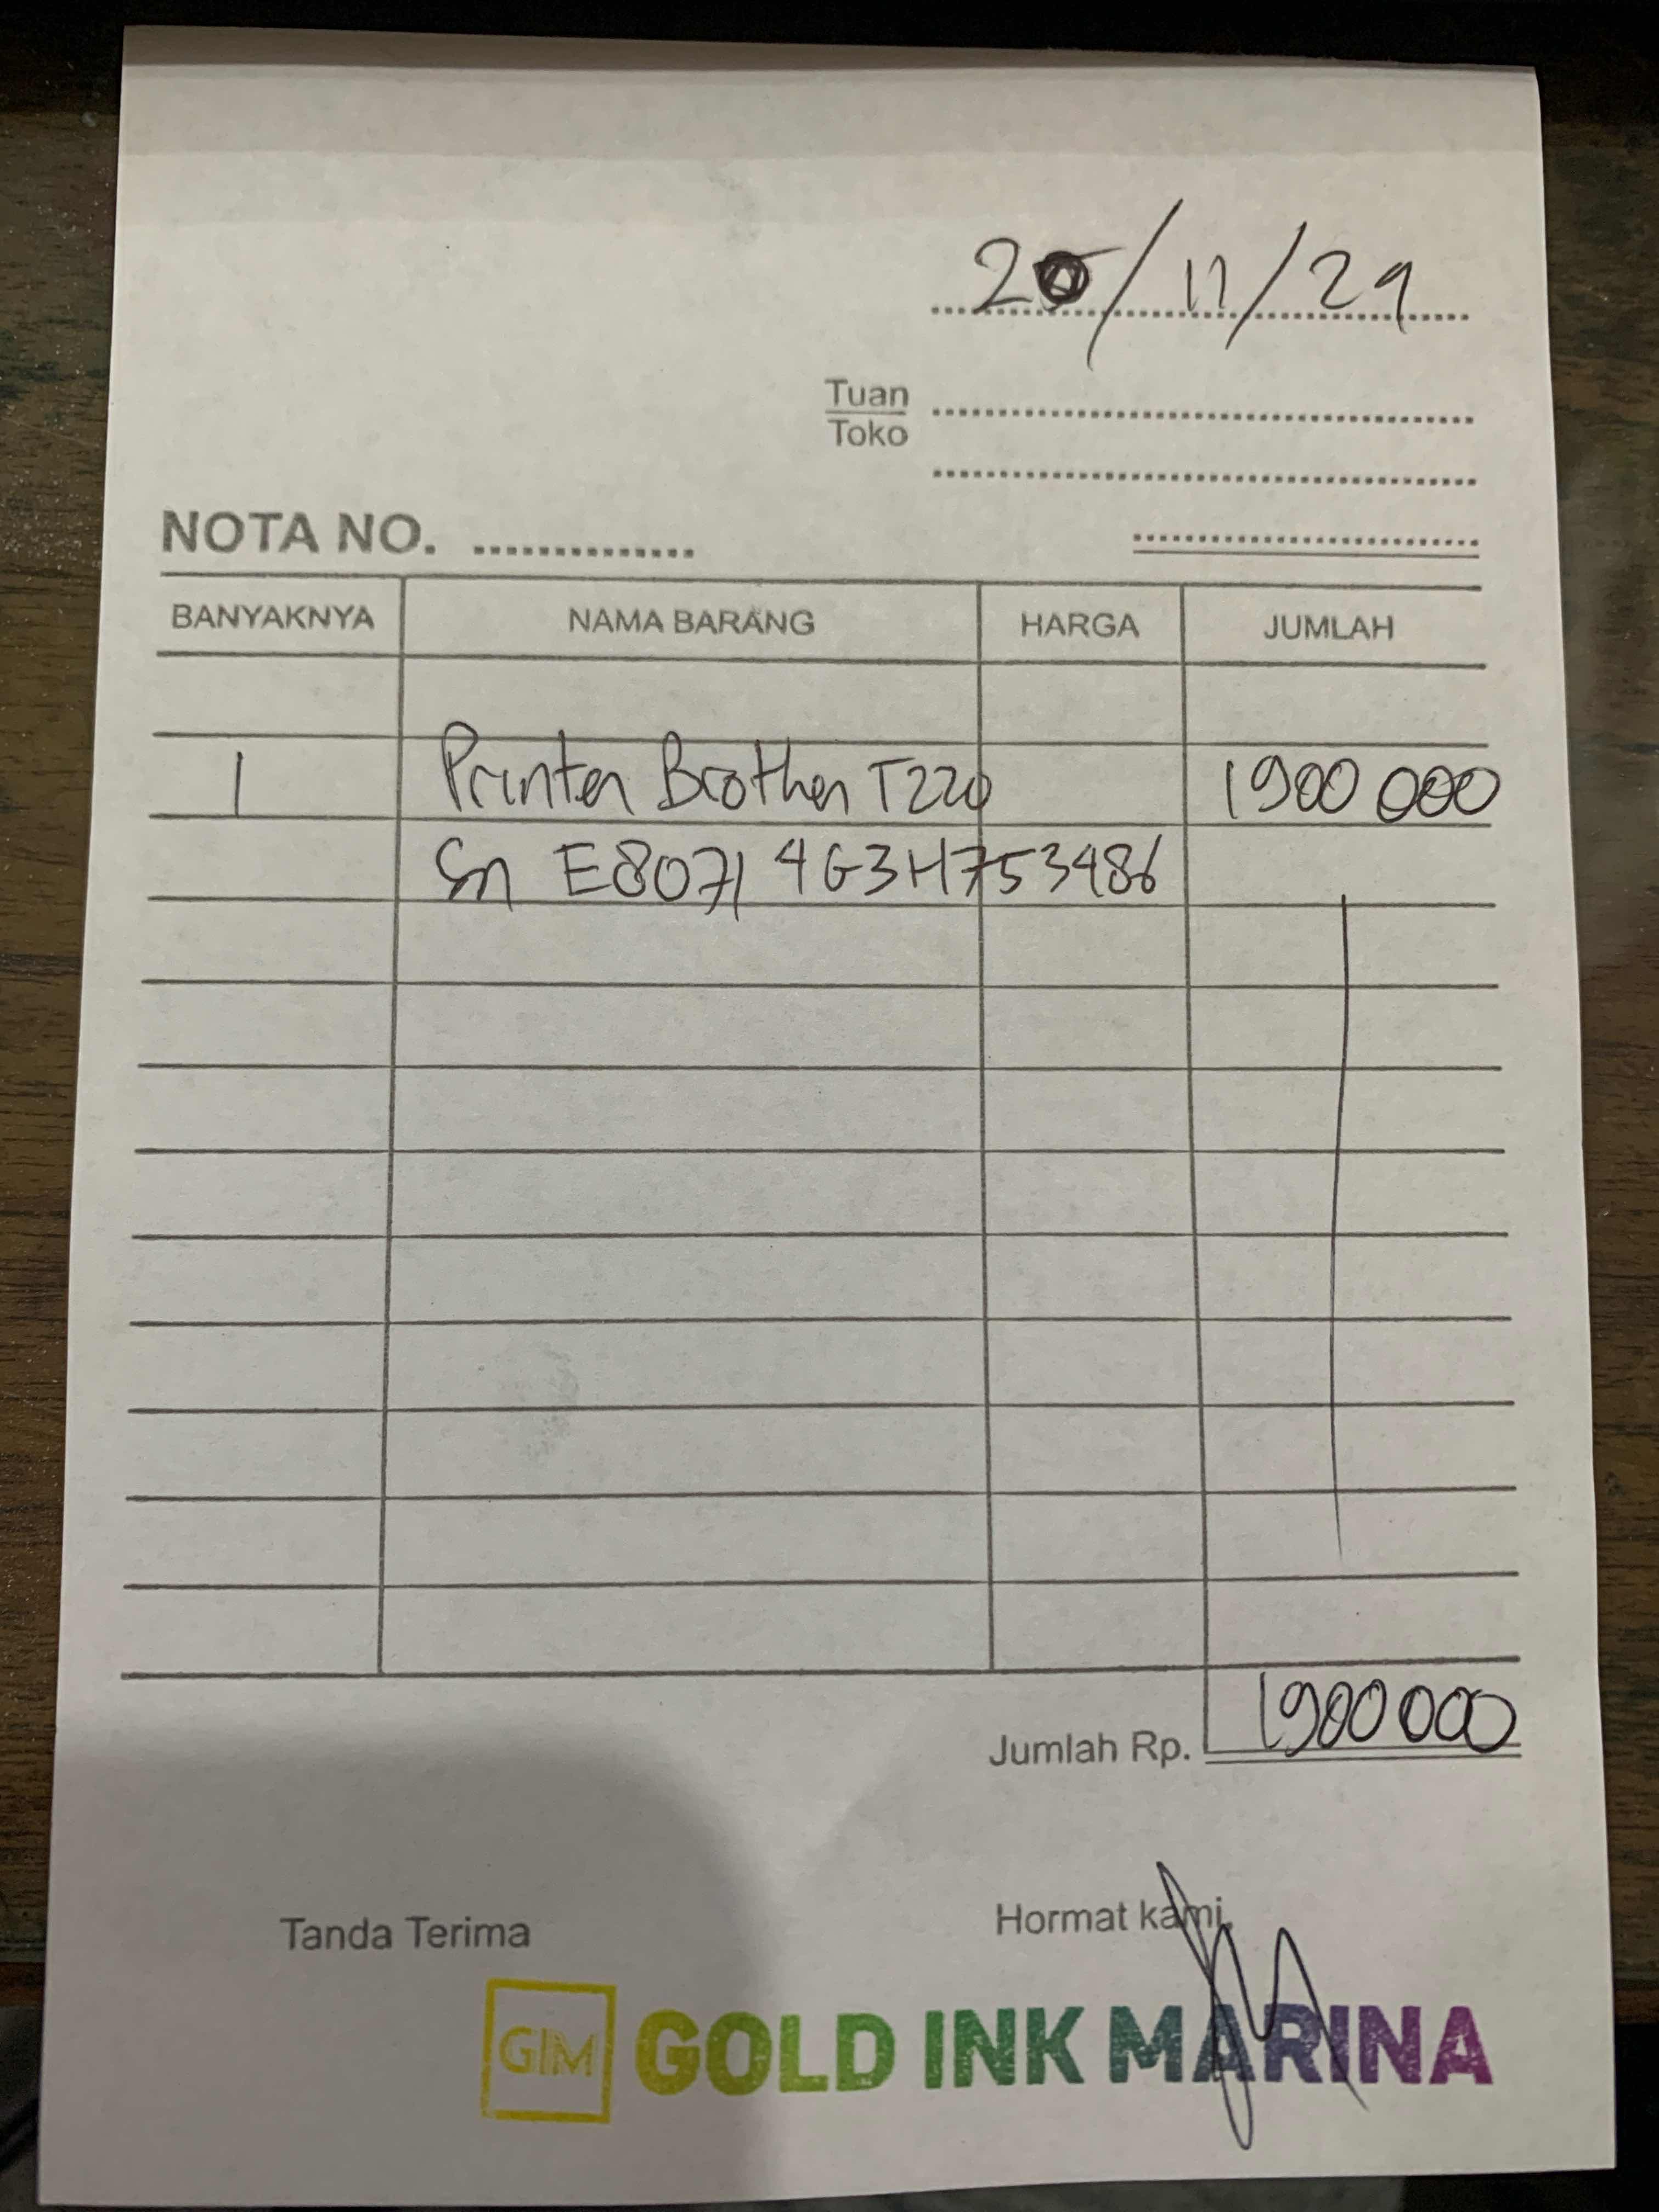 20/11/24
Tuan
Toko
NOTA NO.
BANYAKNYA NAMA BARANG HARGA JUMLAH
1 Printer Brother T220 1900 000
Sn E8071 4G3H753486
Jumlah Rp. 1900 000
Tanda Terima Hormat kami,
GIM GOLD INK MARINA